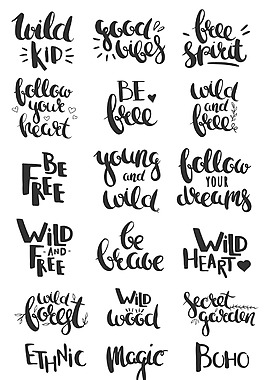 wild
KID
good
vibes
free
spirit
follow
your
heart
BE
free
wild
and
free
BE
FREE
young
and
wild
follow
YOUR
dreams
WILD
AND
FREE
be
brave
WILD
HEART
wild
forest
WILD
wood
secret
garden
ETHNIC
Magic
BOHO